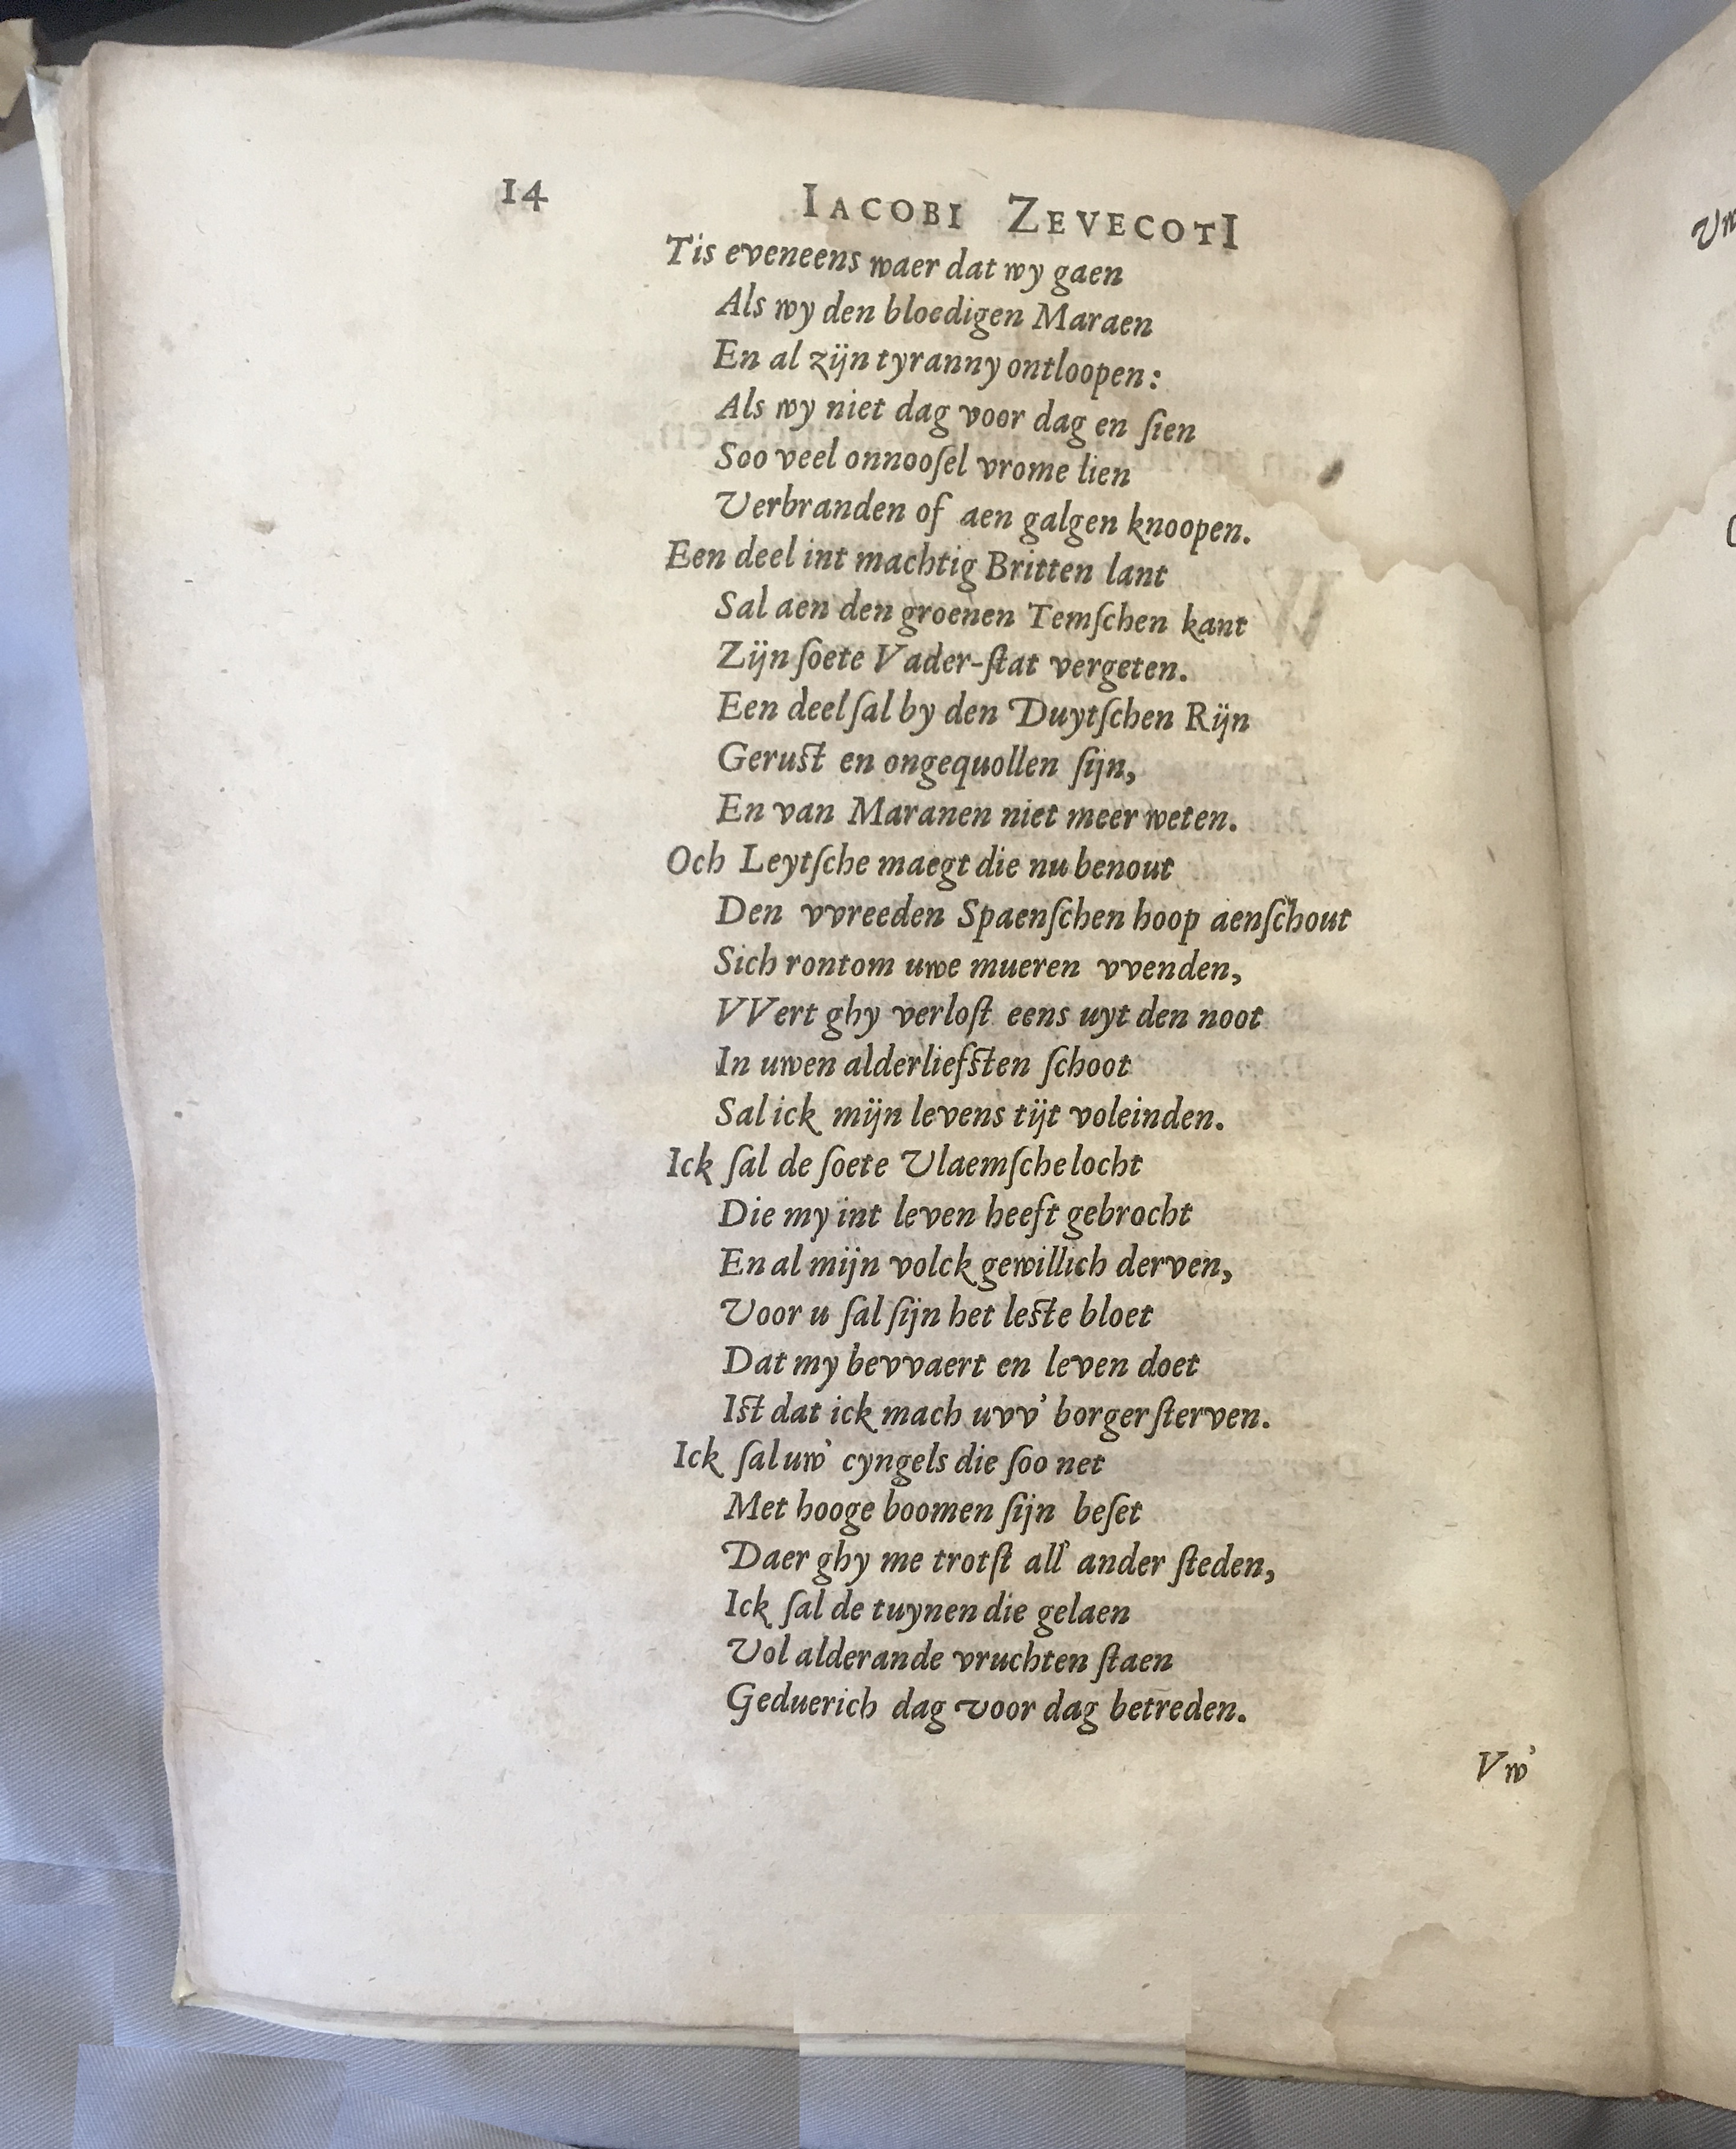 14 IACOBI ZEVECOTI
Tis eveneens waer dat wy gaen
Als wy den bloedigen Maraen
En al zijn tyranny ontloopen:
Als wy niet dag voor dag en ſien
Soo veel onnooſel vrome lien
Verbranden of aen galgen knoopen.
Een deel int machtig Britten lant
Sal aen den groenen Temſchen kant
Zijn ſoete Vader-ſtat vergeten.
Een deel ſal by den Duytſchen Rijn
Geruſt en ongequollen ſijn,
En van Maranen niet meer weten.
Och Leytſche maegt die nu benout
Den vvreeden Spaenſchen hoop aenſchout
Sich rontom uwe mueren vvenden,
VVert ghy verloſt eens uyt den noot
In uwen alderliefſten ſchoot
Sal ick mijn levens tijt voleinden.
Ick ſal de ſoete Vlaemſche locht
Die my int leven heeft gebrocht
En al mijn volck gewillich derven,
Voor u ſal ſijn het leſte bloet
Dat my bevvaert en leven doet
Iſt dat ick mach uvv' borger ſterven.
Ick ſal uw' cyngels die ſoo net
Met hooge boomen ſijn beſet
Daer ghy me trotſt all' ander ſteden,
Ick ſal de tuynen die gelaen
Vol alderande vruchten ſtaen
Geduerich dag voor dag betreden.
Vw'